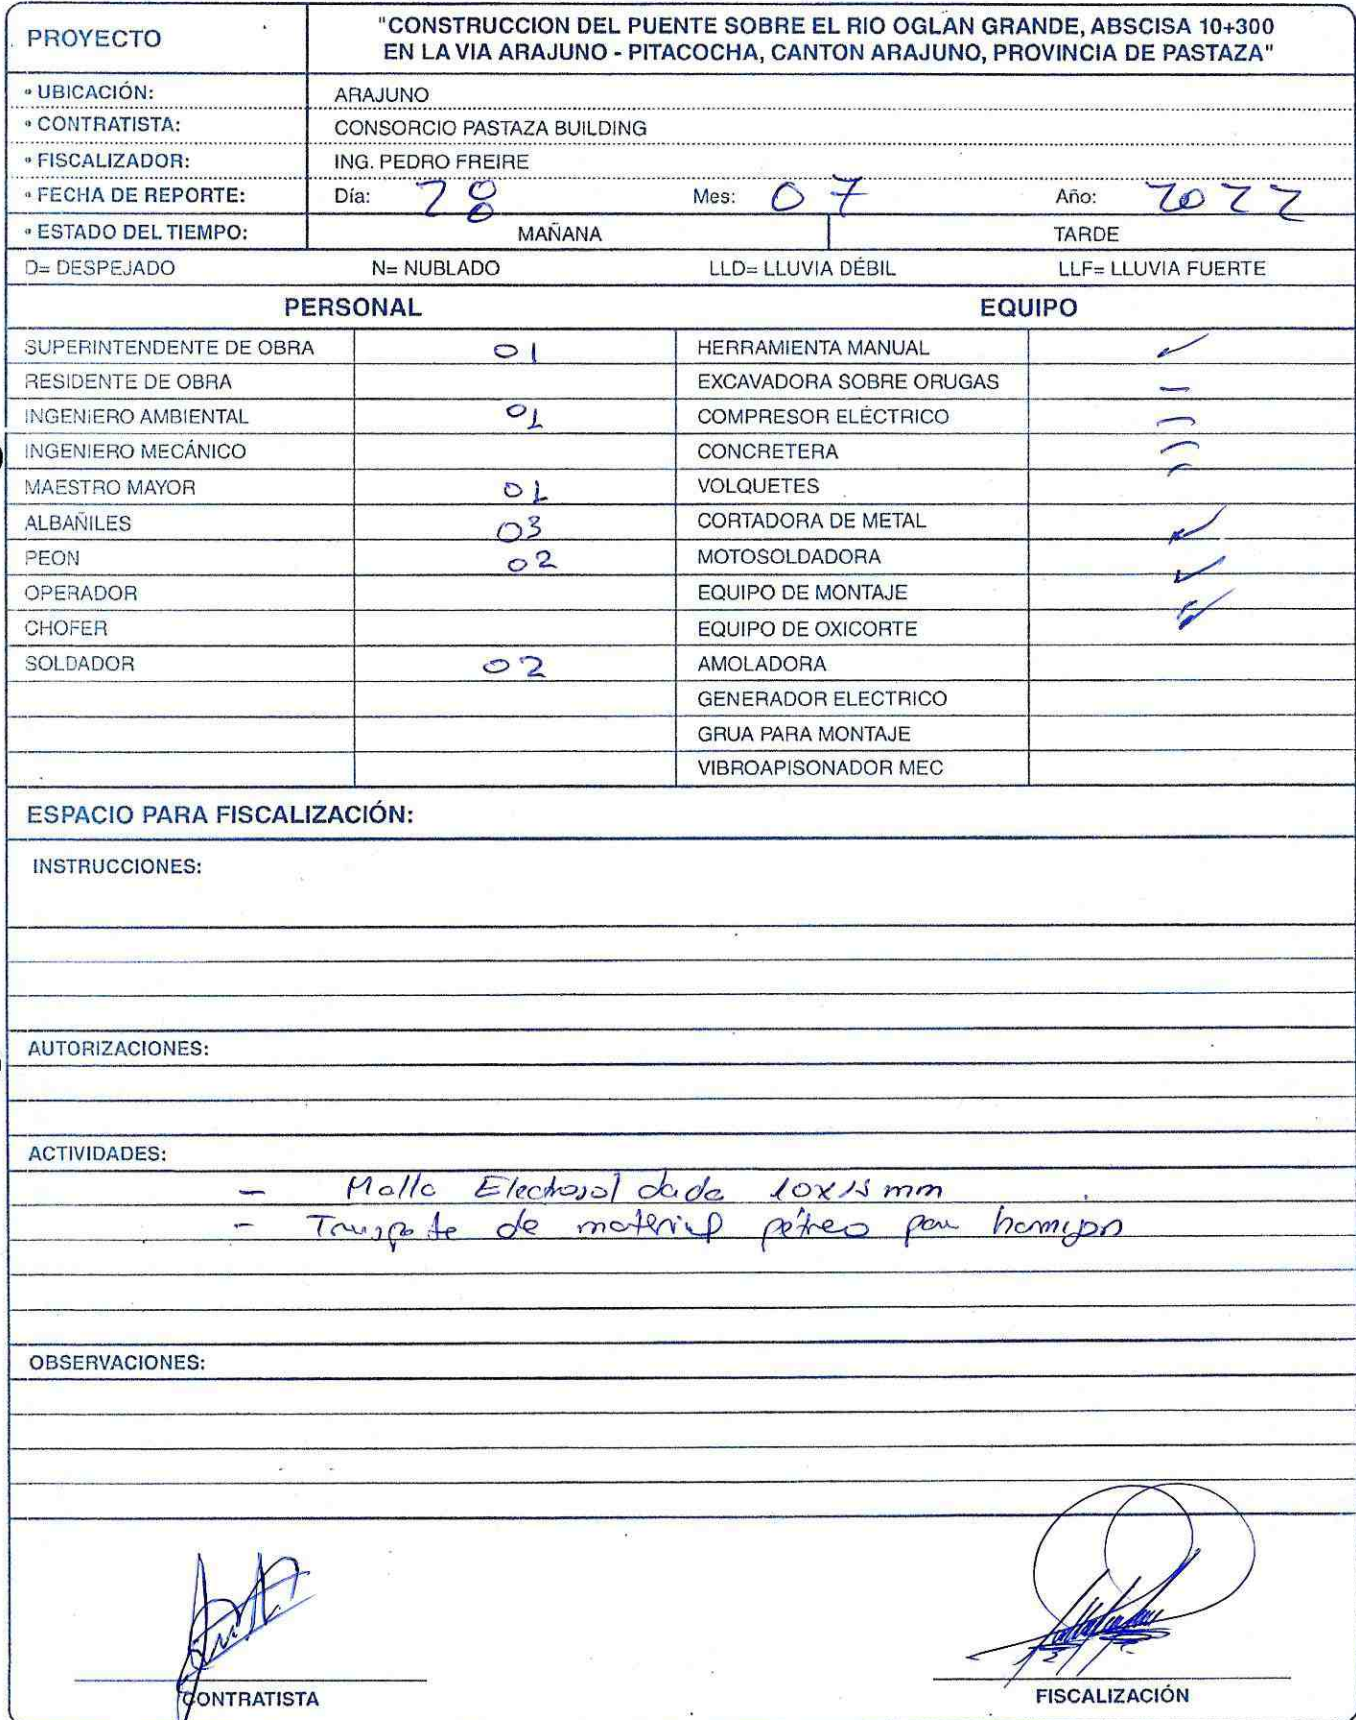 PROYECTO
"CONSTRUCCION DEL PUENTE SOBRE EL RIO OGLAN GRANDE, ABSCISA 10+300
EN LA VIA ARAJUNO - PITACOCHA, CANTON ARAJUNO, PROVINCIA DE PASTAZA"
• UBICACIÓN: ARAJUNO
• CONTRATISTA: CONSORCIO PASTAZA BUILDING
• FISCALIZADOR: ING. PEDRO FREIRE
• FECHA DE REPORTE: Día: 28 Mes: 07 Año: 2022
• ESTADO DEL TIEMPO: MAÑANA TARDE
D= DESPEJADO N= NUBLADO LLD= LLUVIA DÉBIL LLF= LLUVIA FUERTE
PERSONAL EQUIPO
SUPERINTENDENTE DE OBRA 01 HERRAMIENTA MANUAL ✓
RESIDENTE DE OBRA EXCAVADORA SOBRE ORUGAS –
INGENIERO AMBIENTAL 01 COMPRESOR ELÉCTRICO –
INGENIERO MECÁNICO CONCRETERA –
MAESTRO MAYOR 01 VOLQUETES –
ALBAÑILES 03 CORTADORA DE METAL ✓
PEON 02 MOTOSOLDADORA ✓
OPERADOR EQUIPO DE MONTAJE ✓
CHOFER EQUIPO DE OXICORTE
SOLDADOR 02 AMOLADORA
GENERADOR ELECTRICO
GRUA PARA MONTAJE
VIBROAPISONADOR MEC
ESPACIO PARA FISCALIZACIÓN:
INSTRUCCIONES:
AUTORIZACIONES:
ACTIVIDADES:
- Malla Electrosoldada 10x15 mm
- Transporte de material pétreo para hormigon
OBSERVACIONES:
CONTRATISTA FISCALIZACIÓN